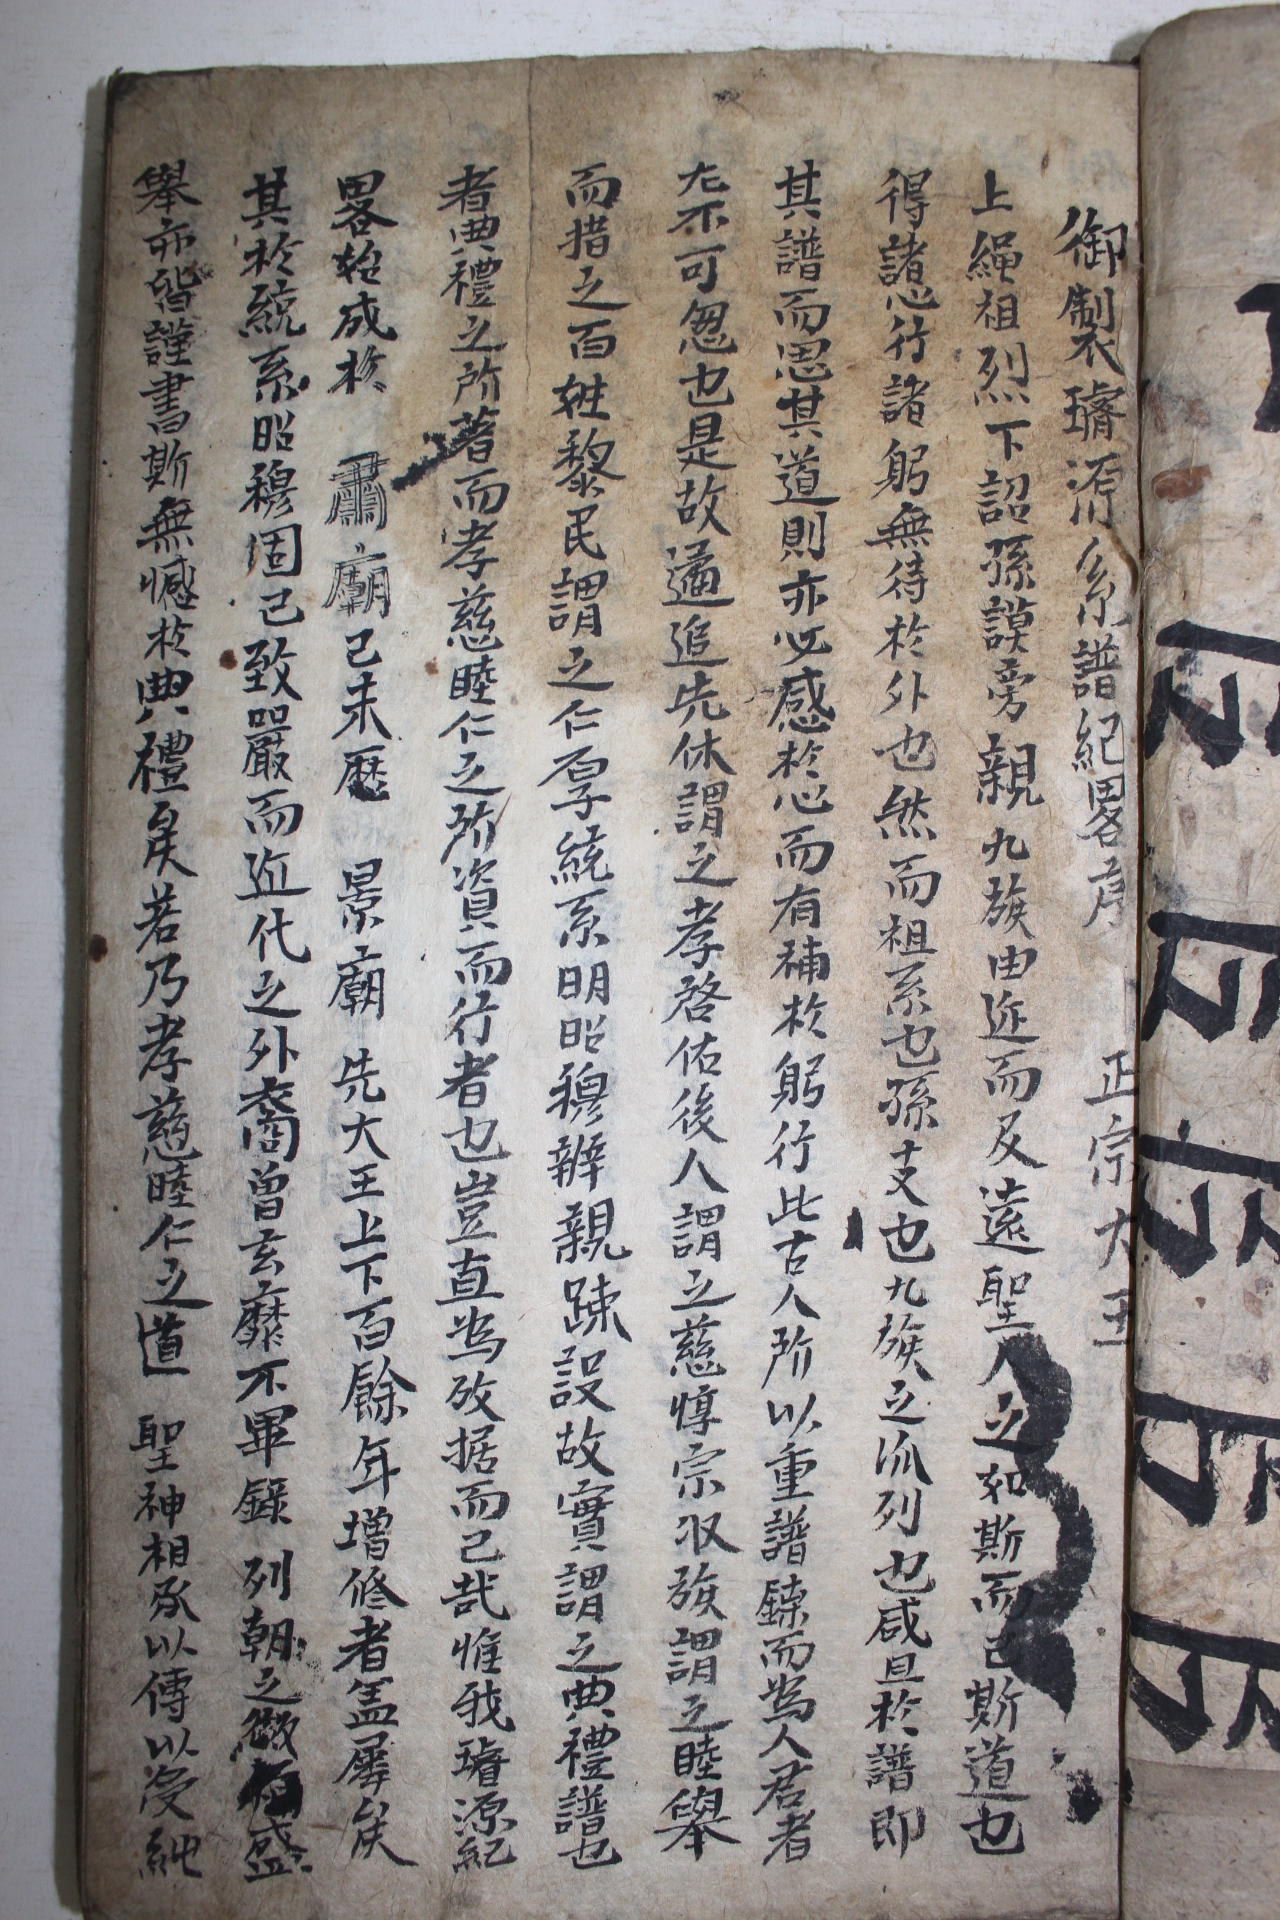 御製璿源系譜紀畧序 正宗大王
上繩祖烈下詔孫謨旁親九族由近而及遠聖人之如斯而已斯道也
得諸心行諸躬無待於外也然而祖系也孫支也九族之派列也咸具於譜即
其譜而思其道則亦必感於心而有補於躬行此古人所以重譜錄而爲人君者
尤不可忽也是故遹追先休謂之孝啓佑後人謂之慈惇宗収族謂之睦擧
而措之百姓黎民謂之仁厚統系明昭穆辨親踈設故實謂之典禮譜也
者典禮之所著而孝慈睦仁之所資而行者也豈直爲攷据而已哉惟我璿源紀
畧始成於 肅廟己未歷 景廟 先大王上下百餘年增修者盖屢矣
其於統系昭穆固已致嚴而近代之外裔曾玄靡不畢錄 列朝之徽 盛
擧亦皆謹書斯無憾於典禮矣若乃孝慈睦仁之道 聖神相承以傳以受純